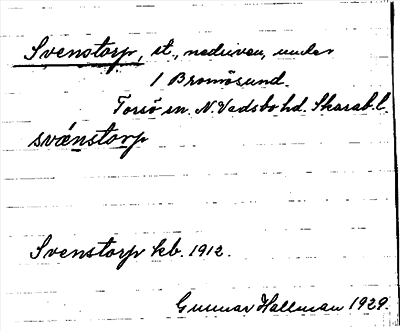 Svenstorp, st., nedriven, under
1 Bromösund.
Torsö sn. N. Vadsbo hd. Skarab. l.
svǽnstorp
Svenstorp kb. 1912.
Gunnar Hallman 1929.